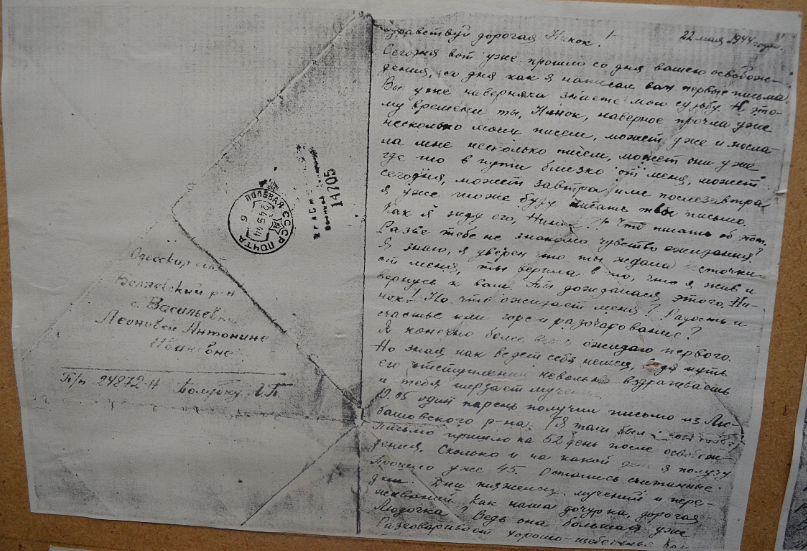 Одесская
Беляевский р-н
с. Васильевка
Леоновой Антонине
Ивановне
П/п 24872-Н
ПОЛЕВАЯ ПОЧТА СССР
14705
Здравствуй дорогая Нинок!
22 мая 1944 года
Сегодня вот уже прошли со дня вашего освобож-
дения, со дня как я написал вам первые письма
Вы уже наверняка знаете мою судьбу. К это-
му времени ты, Нинок, наверное прочла уже
несколько моих писем, может уже и писа-
ла мне несколько писем, может они уже
где то в пути близко от меня, может
сегодня, может завтра или послезавтра
я уже тоже буду читать твои письма.
Как я жду его, Нинок! Что писать об этом.
Разве тебе не знакомо чувство ожидания?
Я знаю, я уверен что ты ждала весточки
от меня, ты верила в то, что я жив и
вернусь к вам. Ты дождалась этого, Ни-
нок! Но, что ожидает меня? Радость и
счастье или горе и разочарование?
Я конечно более ожидаю первого.
Но зная как ведет себя немец, путь
его отступления невольно вздрагиваешь
и тебя терзают
19.05 один парень получил письмо из Лю-
башовского р-на.
Письмо пришло на 52 день после освобож-
дения. Сколько и на какой я получу
Прошло уже 45. Остались считанные
дни. Дни тяжелых мучений и пере-
живаний. Как наша дочурка, дорогая
Людочка? Ведь она большая уже
Разговаривает хорошо